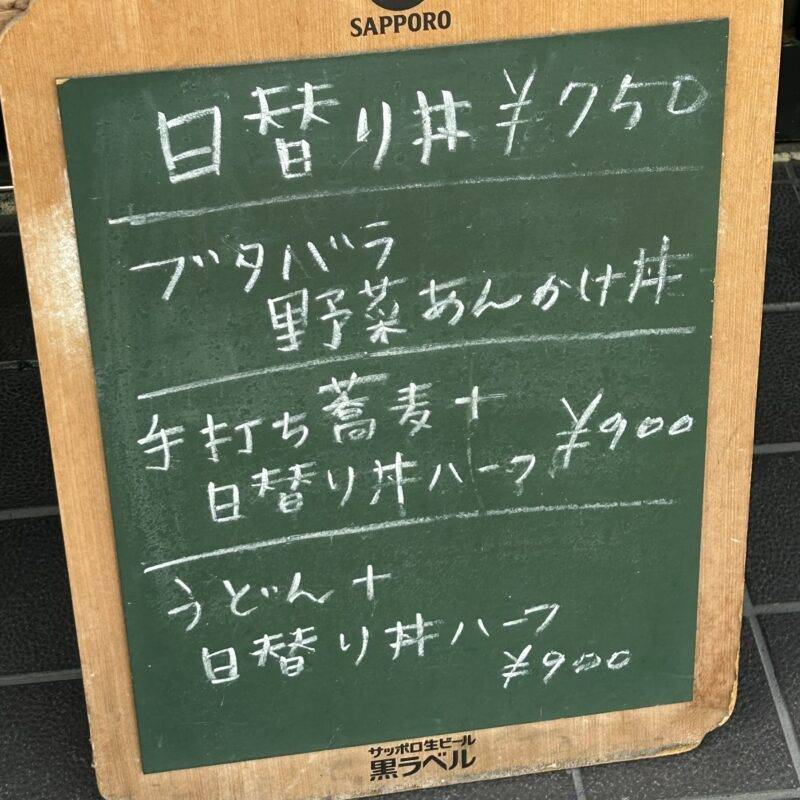 SAPPORO
日替り丼 ¥750
ブタバラ
野菜あんかけ丼
手打ち蕎麦+
日替り丼ハーフ ¥900
うどん+
日替り丼ハーフ
¥900
サッポロ生ビール
黒ラベル